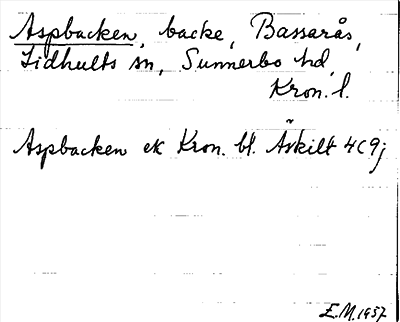 Aspbacken, backe, Bassarås,
Lidhults sn, Sunnerbo hd
Kron. l.
Aspbacken ek Kron. bl. Äskilt 4C9j
E.M. 1957